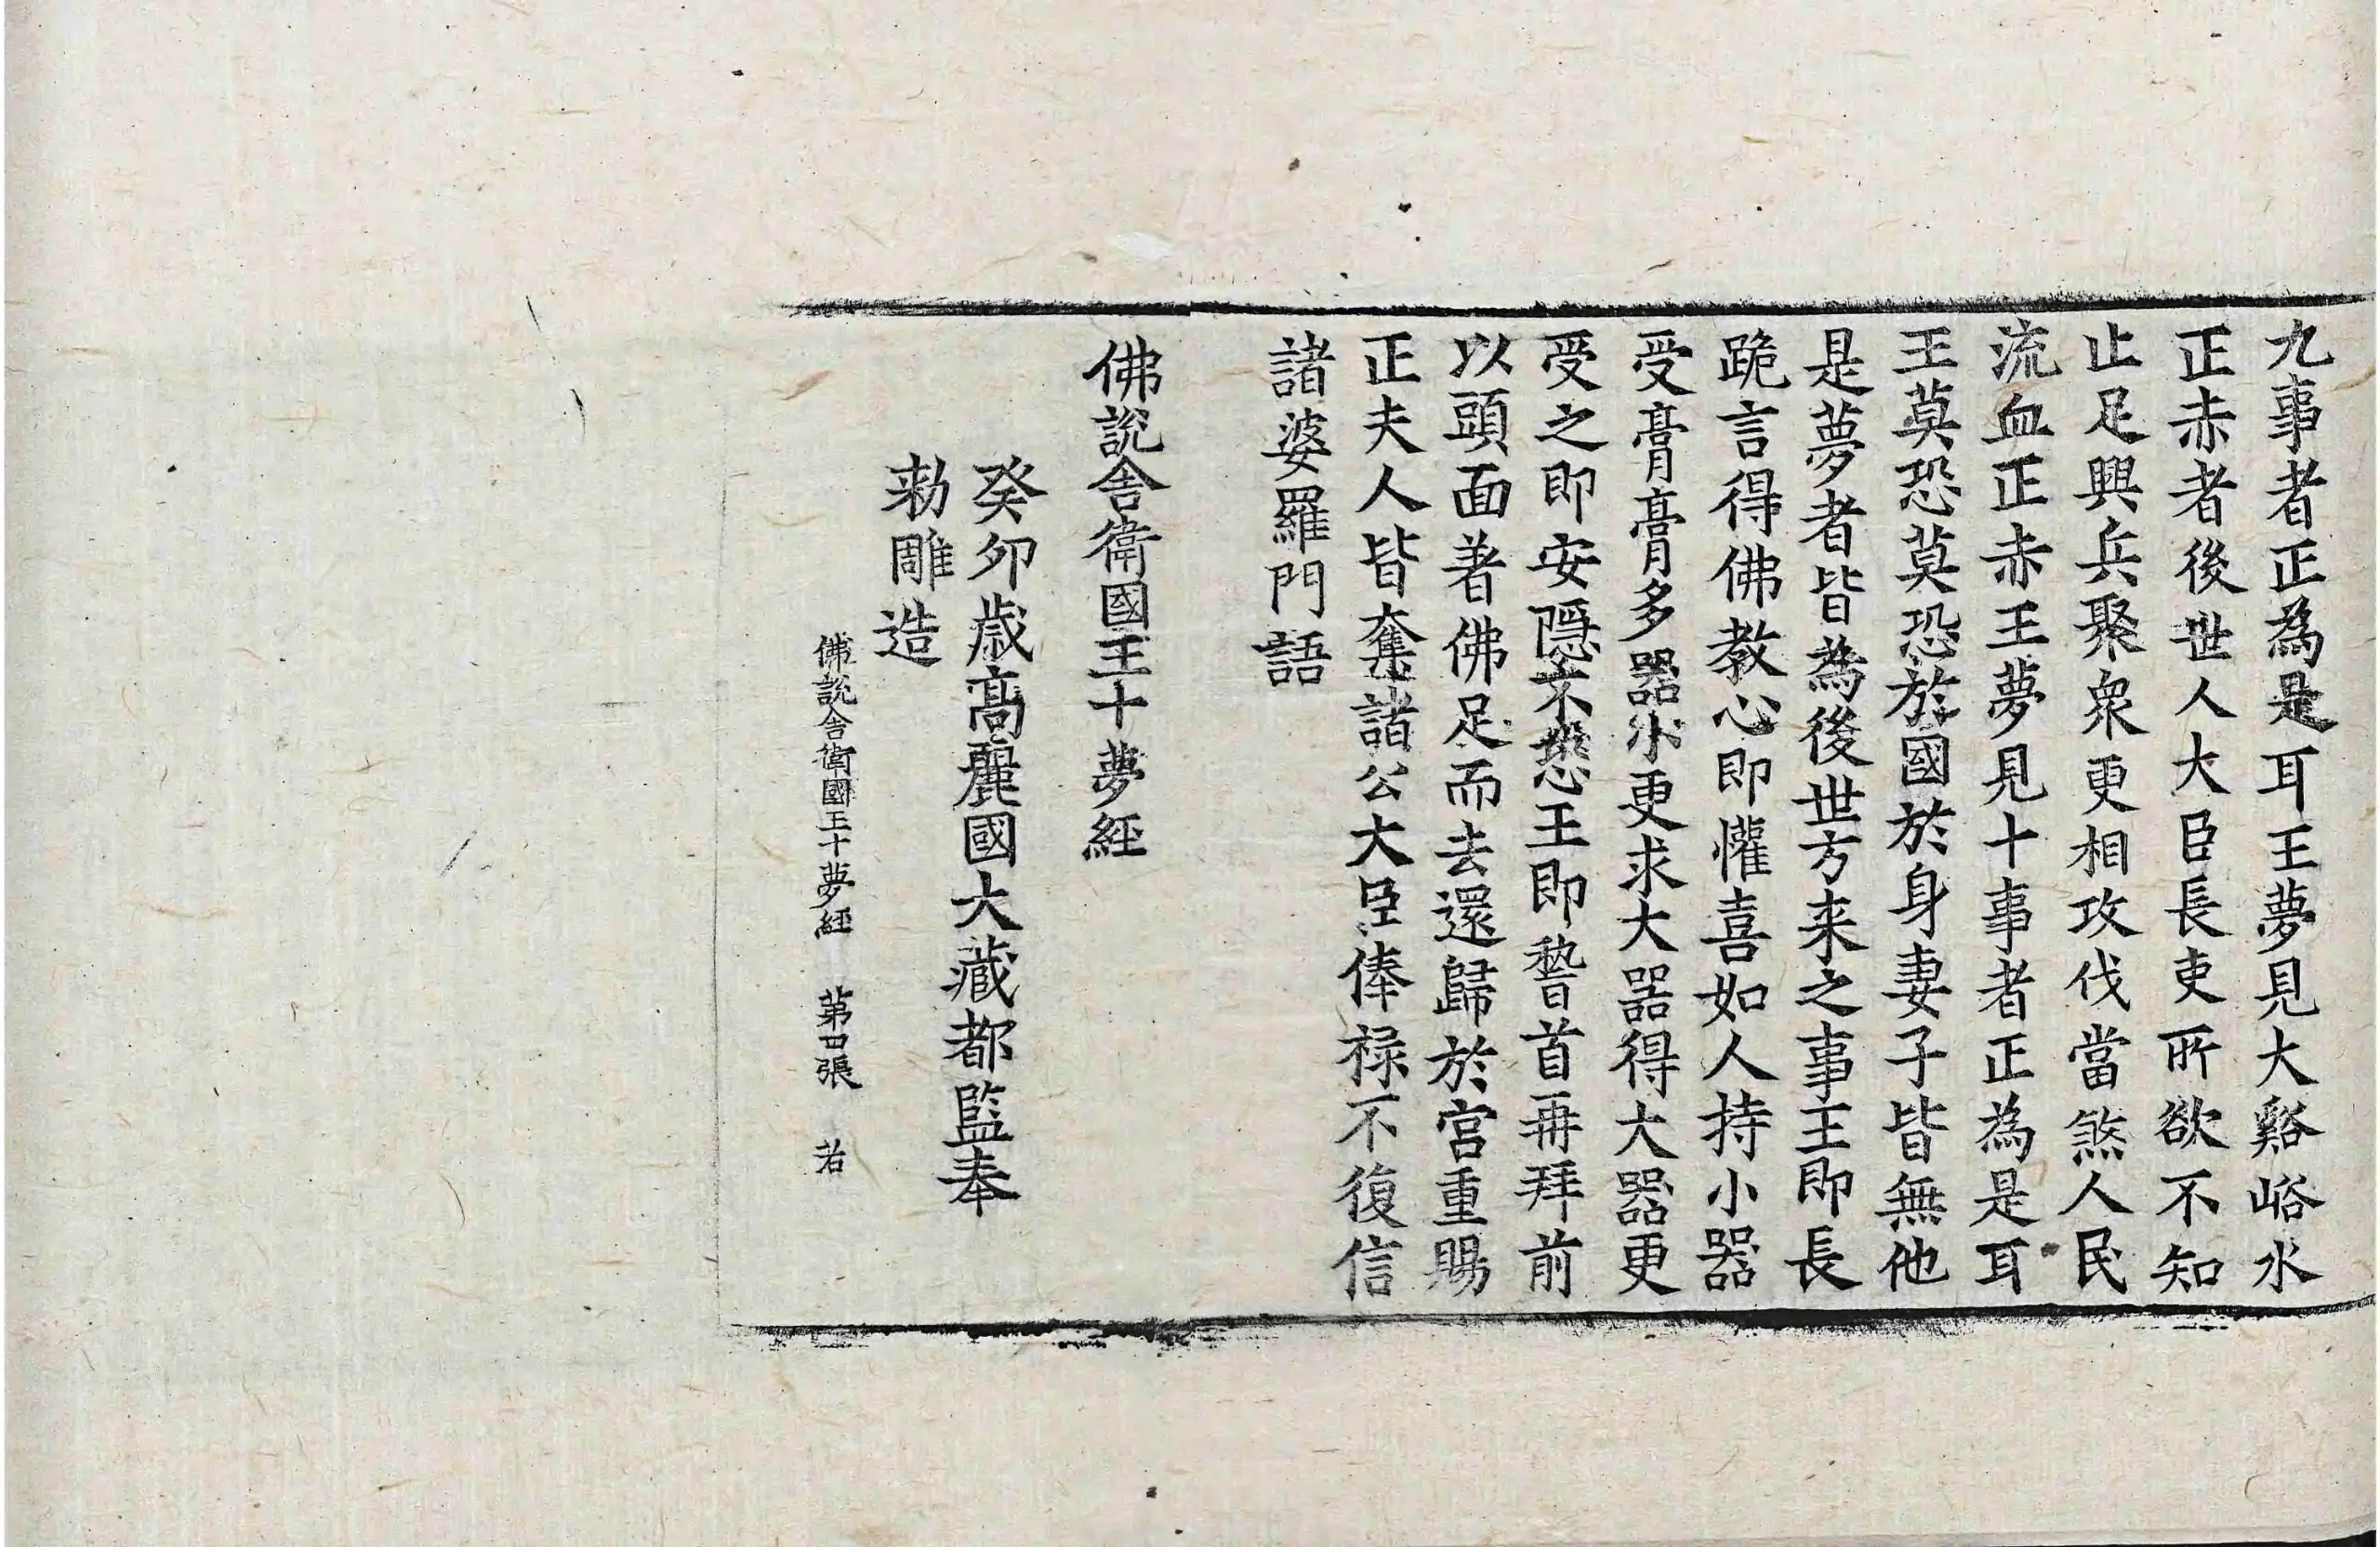 九事者正為是耳王夢見大谿峪水
正赤者後世人大臣長吏所欲不知
止足興兵聚衆更相攻伐當煞人民
流血正赤王夢見十事者正為是耳
王莫恐莫恐於國於身妻子皆無他
是夢者皆為後世方来之事王即長
跪言得佛教心即懽喜如人持小器
受膏膏多器小更求大器得大器更
受之即安隱不恐王即䭫首再拜前
以頭面著佛足而去還歸於宮重賜
正夫人皆奪諸公大臣俸禄不復信
諸婆羅門語
佛說舍衛國王十夢經
癸卯歳高麗國大藏都監奉
勑雕造
佛說舍衛國王十夢經 苐四張 若